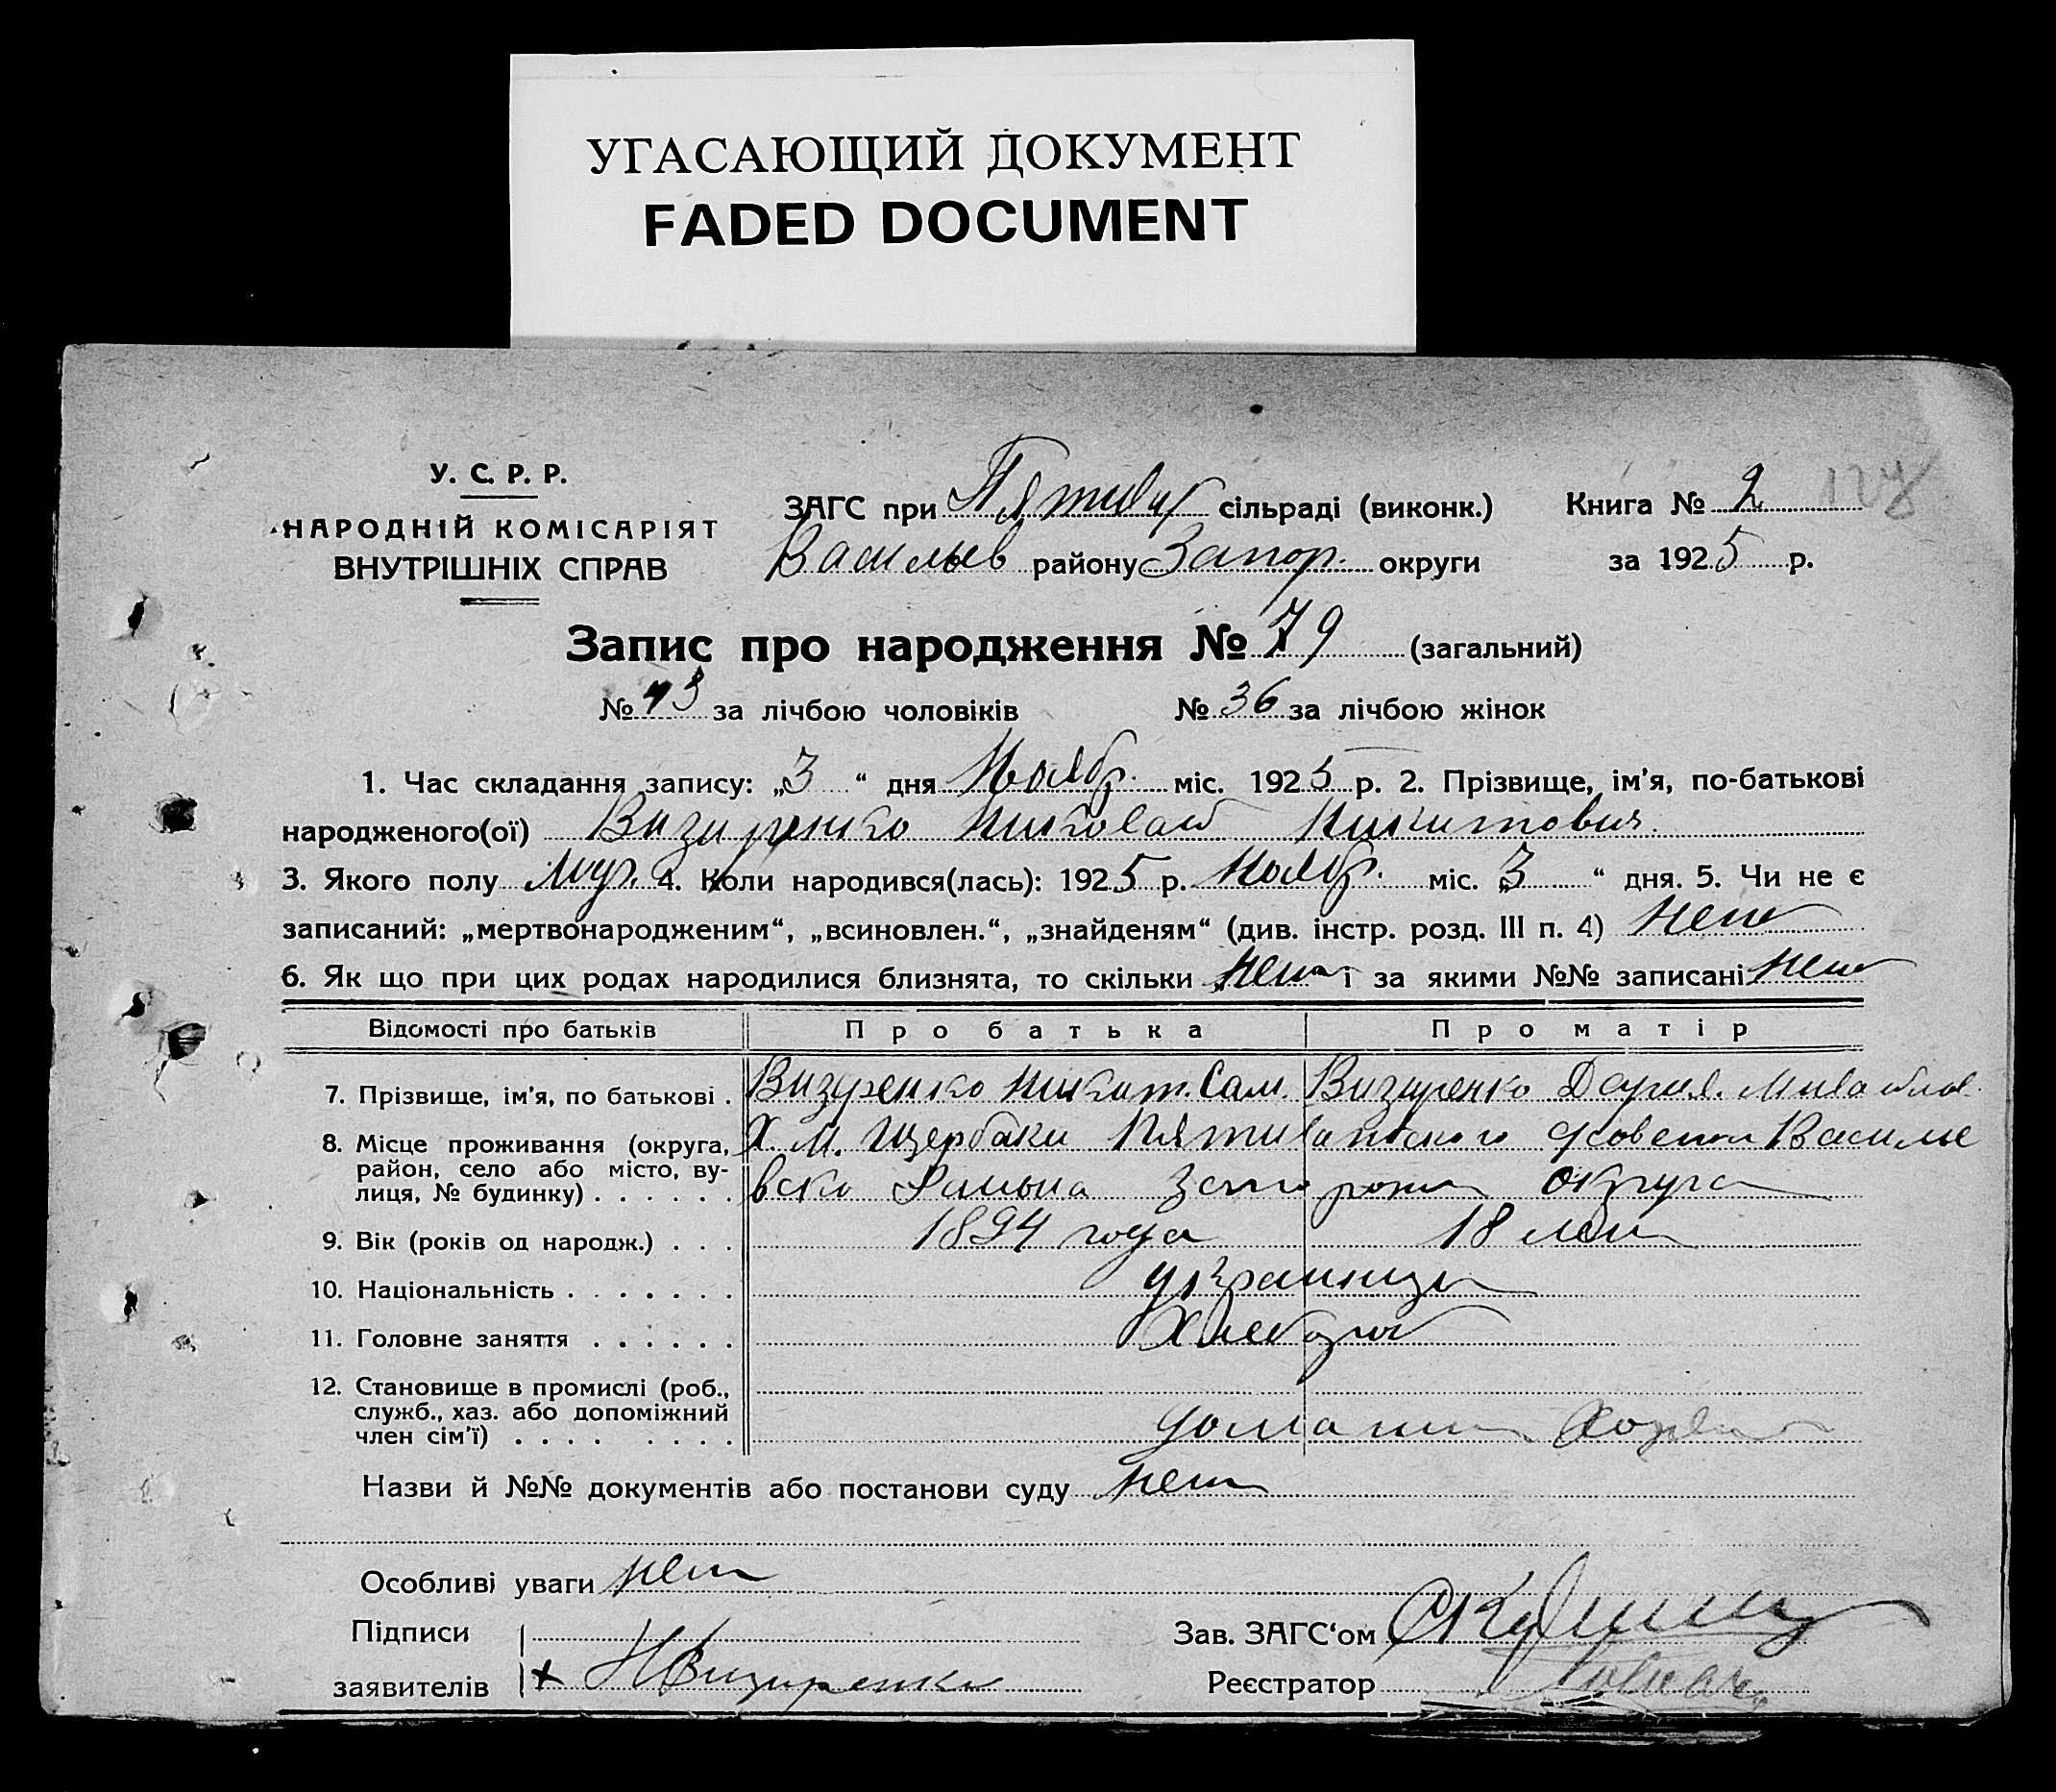 УГАСАЮЩИЙ ДОКУМЕНТ
FADED DOCUMENT
У. С. Р. Р.
НАРОДНІЙ КОМІСАРІЯТ
ВНУТРІШНІХ СПРАВ
ЗАГС при сільраді (виконк.)
Васильев району Запор. округи
Книга № 2
за 1925 р.
Запис про народження № 79 (загальний)
№ 43 за лічбою чоловіків № 36 за лічбою жінок
1. Час складання запису: „3“ дня Ноябр. міс. 1925 р. 2. Прізвище, ім'я, по-батькові
народженого(ої) Визиренко Николай Никитович.
3. Якого полу Муж. 4. Коли народився(лась): 1925 р. Ноябр. міс. „3“ дня. 5. Чи не є
записаний: „мертвонародженим“, „всиновлен.“, „знайденям“ (див. інстр. розд. III п. 4) нет
6. Як що при цих родах народилися близнята, то скільки нет і за якими №№ записані нет
Відомості про батьків Про батька Про матір
7. Прізвище, ім'я, по батькові . Визиренко Никит. Сам. Визиренко Дария.
8. Місце проживання (округа, Х. М. Щербаки Василье
район, село або місто, ву- вско Района округа
лиця, № будинку) . . . . . .
9. Вік (років од народж.) . . . 1894 года 18 лет
10. Національність . . . . . . . украинцы
11. Головне заняття . . . . . . Хлебороб
12. Становище в промислі (роб.,
служб., хаз. або допоміжний
член сім'ї) . . . . . . . .
Назви й №№ документів або постанови суду нет
Особливі уваги нет
Підписи
заявителів + Н Визиренко
Зав. ЗАГС‘ом
Реєстратор